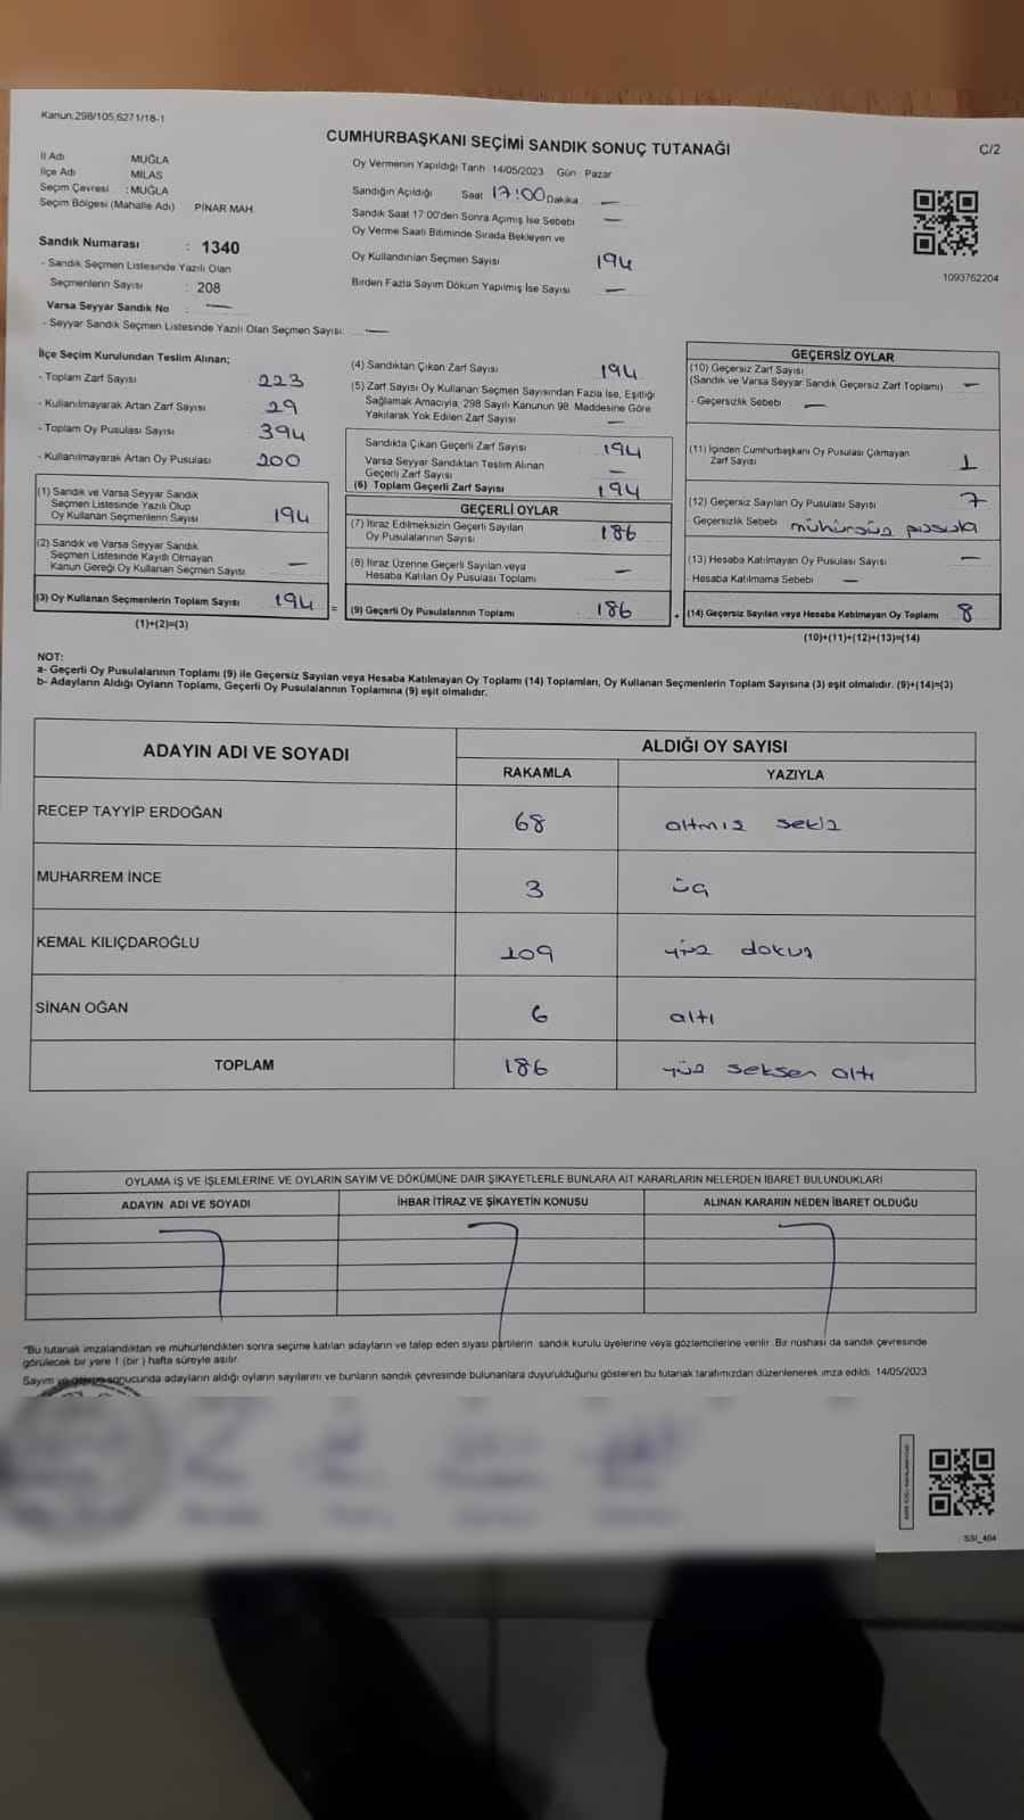 Kanun:298/105,6271/18-1
CUMHURBAŞKANI SEÇİMİ SANDIK SONUÇ TUTANAĞI
C/2
İl Adı MUĞLA
İlçe Adı MİLAS
Seçim Çevresi : MUĞLA
Seçim Bölgesi (Mahalle Adı) PINAR MAH
Sandık Numarası : 1340
- Sandık Seçmen Listesinde Yazılı Olan
Seçmenlerin Sayısı : 208
Varsa Seyyar Sandık No : —
- Seyyar Sandık Seçmen Listesinde Yazılı Olan Seçmen Sayısı: —
Oy Vermenin Yapıldığı Tarih 14/05/2023 Gün Pazar
Sandığın Açıldığı Saat 17:00 Dakika —
Sandık Saat 17:00'den Sonra Açımış İse Sebebi —
Oy Verme Saati Bitiminde Sırada Bekleyen ve
Oy Kullandırılan Seçmen Sayısı 194
Birden Fazla Sayım Döküm Yapılmış İse Sayısı —
1093762204
İlçe Seçim Kurulundan Teslim Alınan;
- Toplam Zarf Sayısı 223
- Kullanılmayarak Artan Zarf Sayısı 29
- Toplam Oy Pusulası Sayısı 394
- Kullanılmayarak Artan Oy Pusulası 200
(1) Sandık ve Varsa Seyyar Sandık
Seçmen Listesinde Yazılı Olup
Oy Kullanan Seçmenlerin Sayısı 194
(2) Sandık ve Varsa Seyyar Sandık
Seçmen Listesinde Kayıtlı Olmayan
Kanun Gereği Oy Kullanan Seçmen Sayısı —
(3) Oy Kullanan Seçmenlerin Toplam Sayısı 194 =
(1)+(2)=(3)
(4) Sandıktan Çıkan Zarf Sayısı 194
(5) Zarf Sayısı Oy Kullanan Seçmen Sayısından Fazla İse, Eşitliği
Sağlamak Amacıyla, 298 Sayılı Kanunun 98. Maddesine Göre
Yakılarak Yok Edilen Zarf Sayısı —
Sandıkta Çıkan Geçerli Zarf Sayısı 194
Varsa Seyyar Sandıktan Teslim Alınan
Geçerli Zarf Sayısı —
(6) Toplam Geçerli Zarf Sayısı 194
GEÇERLİ OYLAR
(7) İtiraz Edilmeksizin Geçerli Sayılan
Oy Pusulalarının Sayısı 186
(8) İtiraz Üzerine Geçerli Sayılan veya
Hesaba Katılan Oy Pusulası Toplamı —
(9) Geçerli Oy Pusulalarının Toplamı 186 +
GEÇERSİZ OYLAR
(10) Geçersiz Zarf Sayısı
(Sandık ve Varsa Seyyar Sandık Geçersiz Zarf Toplamı) —
- Geçersizlik Sebebi —
(11) İçinden Cumhurbaşkanı Oy Pusulası Çıkmayan
Zarf Sayısı 1
(12) Geçersiz Sayılan Oy Pusulası Sayısı 7
Geçersizlik Sebebi mühürsüz pusula
(13) Hesaba Katılmayan Oy Pusulası Sayısı —
- Hesaba Katılmama Sebebi —
(14) Geçersiz Sayılan veya Hesaba Katılmayan Oy Toplamı 8
(10)+(11)+(12)+(13)=(14)
NOT:
a- Geçerli Oy Pusulalarının Toplamı (9) ile Geçersiz Sayılan veya Hesaba Katılmayan Oy Toplamı (14) Toplamları, Oy Kullanan Seçmenlerin Toplam Sayısına (3) eşit olmalıdır. (9)+(14)=(3)
b- Adayların Aldığı Oyların Toplamı, Geçerli Oy Pusulalarının Toplamına (9) eşit olmalıdır.
ADAYIN ADI VE SOYADI ALDIĞI OY SAYISI
RAKAMLA YAZIYLA
RECEP TAYYİP ERDOĞAN 68 altmış sekiz
MUHARREM İNCE 3 üç
KEMAL KILIÇDAROĞLU 109 yüz dokuz
SİNAN OĞAN 6 altı
TOPLAM 186 yüz seksen altı
OYLAMA İŞ VE İŞLEMLERİNE VE OYLARIN SAYIM VE DÖKÜMÜNE DAİR ŞİKAYETLERLE BUNLARA AİT KARARLARIN NELERDEN İBARET BULUNDUKLARI
ADAYIN ADI VE SOYADI İHBAR İTİRAZ VE ŞİKAYETİN KONUSU ALINAN KARARIN NEDEN İBARET OLDUĞU
"Bu tutanak imzalandıktan ve mühürlendikten sonra seçime katılan adayların ve talep eden siyasi partilerin, sandık kurulu üyelerine veya gözlemcilerine verilir. Bir nüshası da sandık çevresinde
görülecek bir yere 1 (bir) hafta süreyle asılır.
Sayım ve döküm sonucunda adayların aldığı oyların sayılarını ve bunların sandık çevresinde bulunanlara duyurulduğunu gösteren bu tutanak tarafımızdan düzenlenerek imza edildi. 14/05/2023
SSI_404